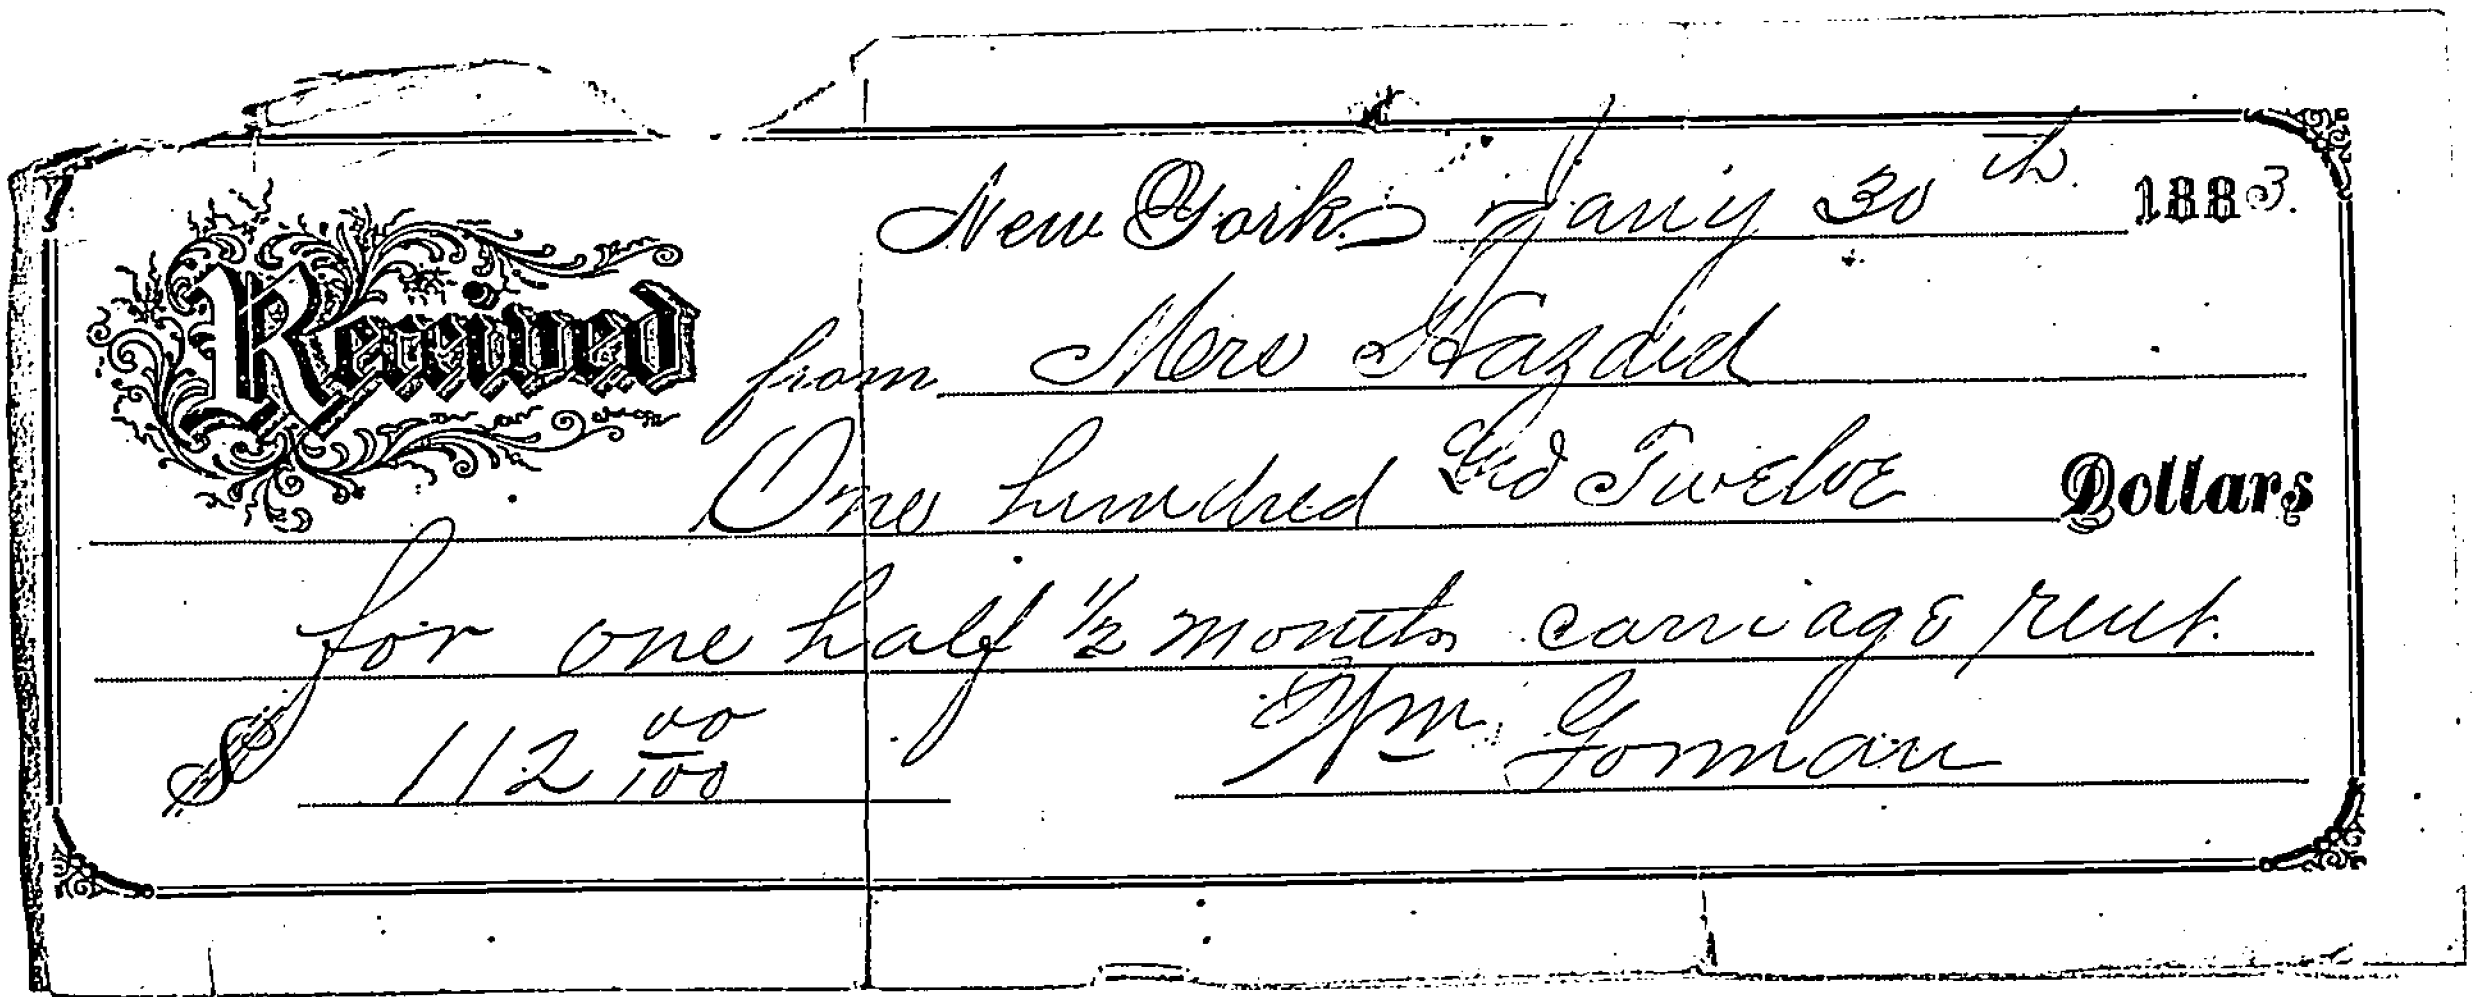 New York, Jany 30th 1883.
Received from Mrs
One hundred and Twelve Dollars
for one half 1/2 months carriage rent.
$ 112 00/100 Wm Gorman